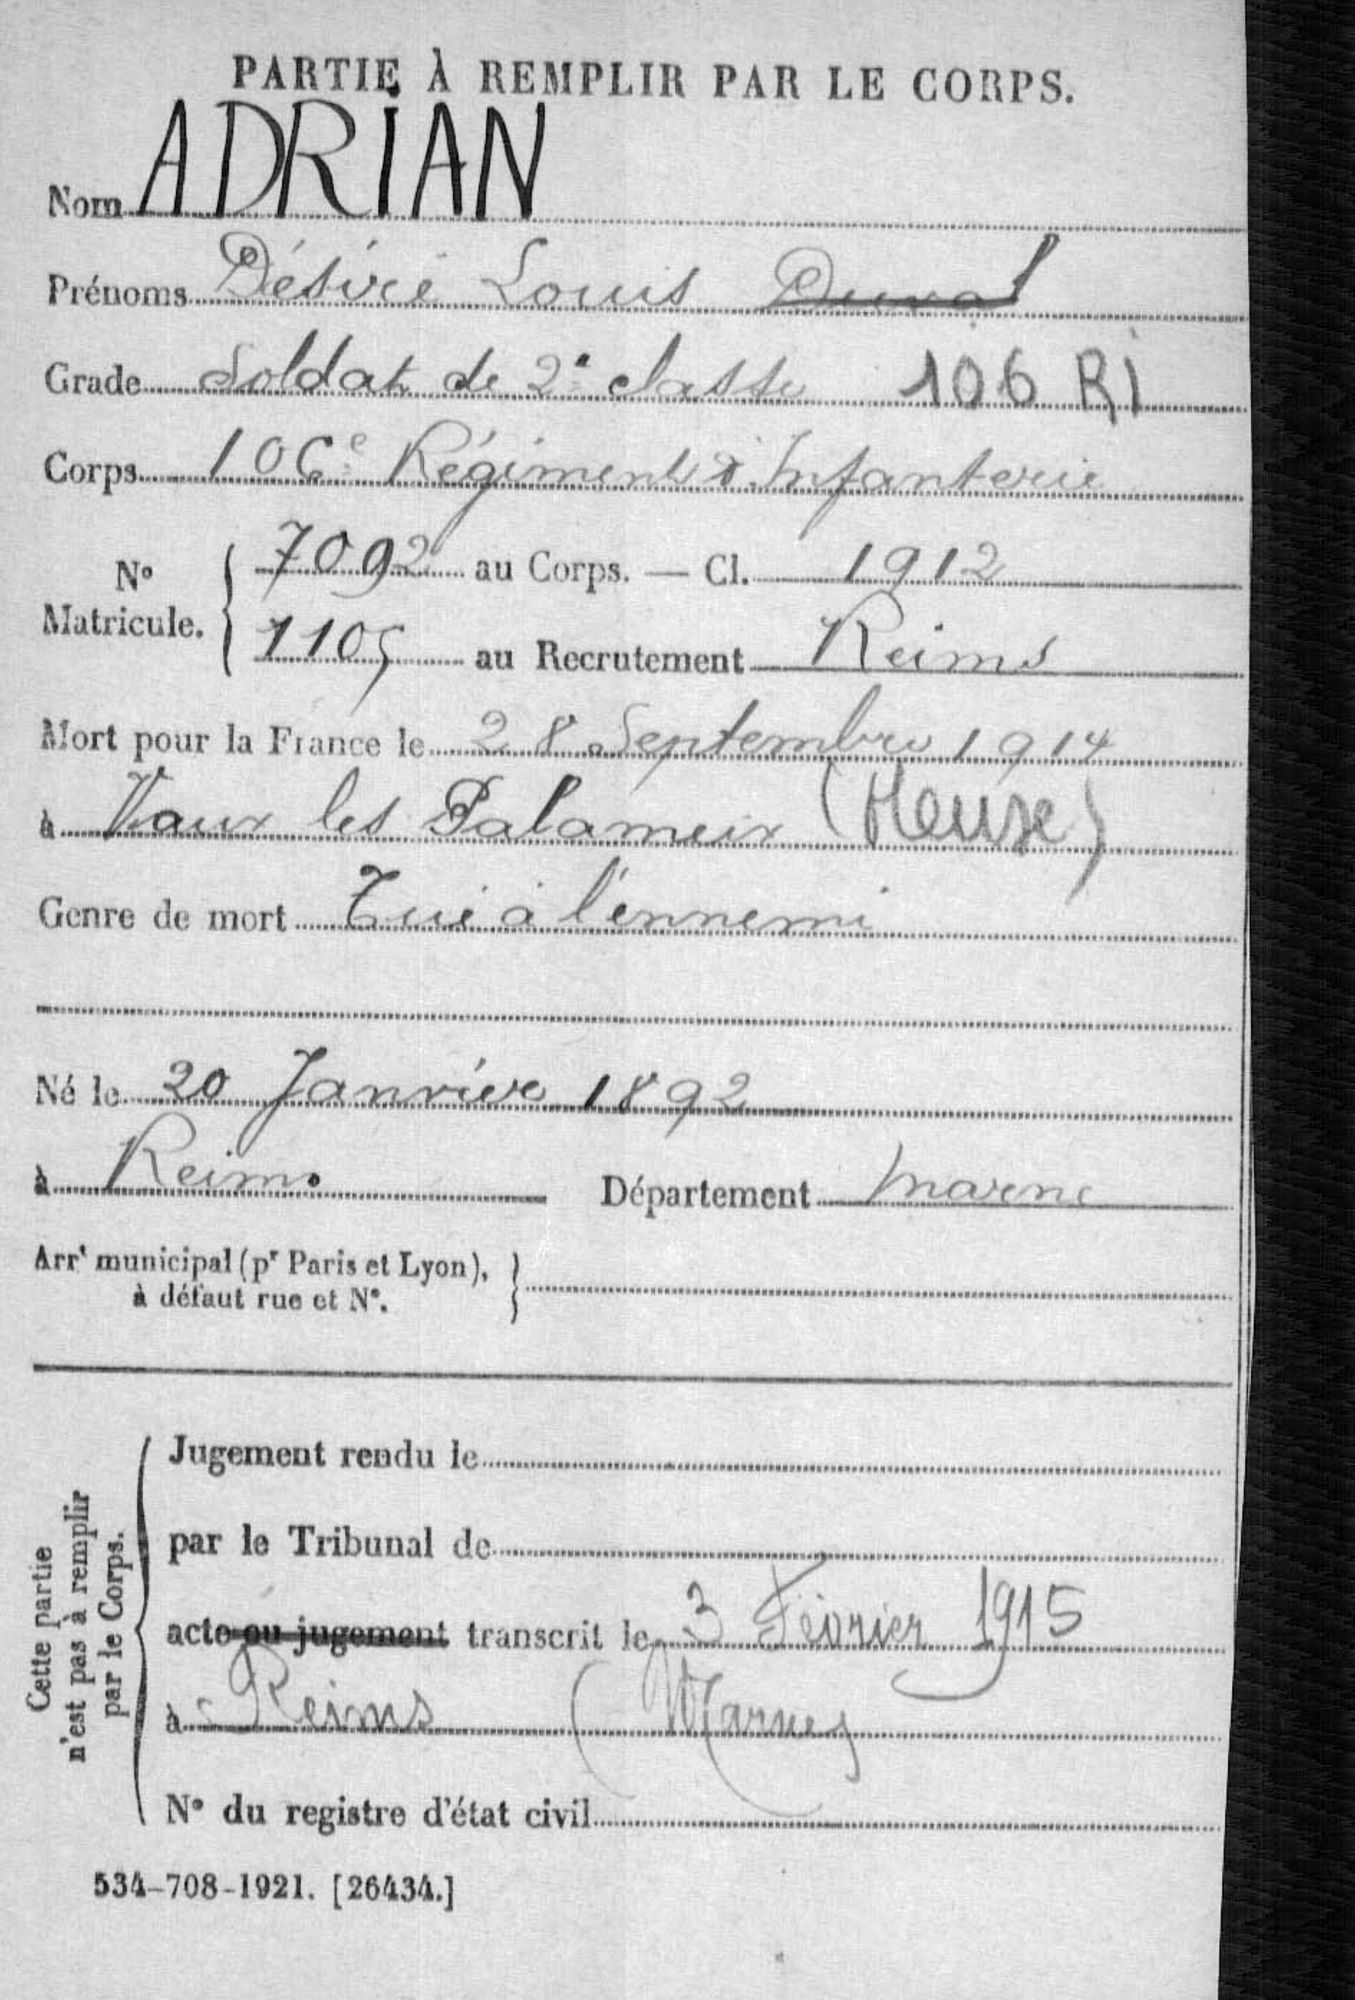 PARTIE À REMPLIR PAR LE CORPS.
Nom ADRIAN
Prénoms Désiré Louis Duval
Grade Soldat de 2e classe 106 RI
Corps 106e Régiment d'Infanterie
No Matricule. { 7092 au Corps. — Cl. 1912
1105 au Recrutement Reims
Mort pour la France le 28 Septembre 1914
à Vaux les Palameix (Meuse)
Genre de mort Tué à l'ennemi
Né le 20 Janvier 1892
à Reims Département Marne
Arrt municipal (pr Paris et Lyon), }
à défaut rue et No.
Cette partie
n'est pas à remplir
par le Corps.
Jugement rendu le
par le Tribunal de
acte ou jugement transcrit le 3 Février 1915
à Reims (Marne)
No du registre d'état civil
534-708-1921. [26434.]